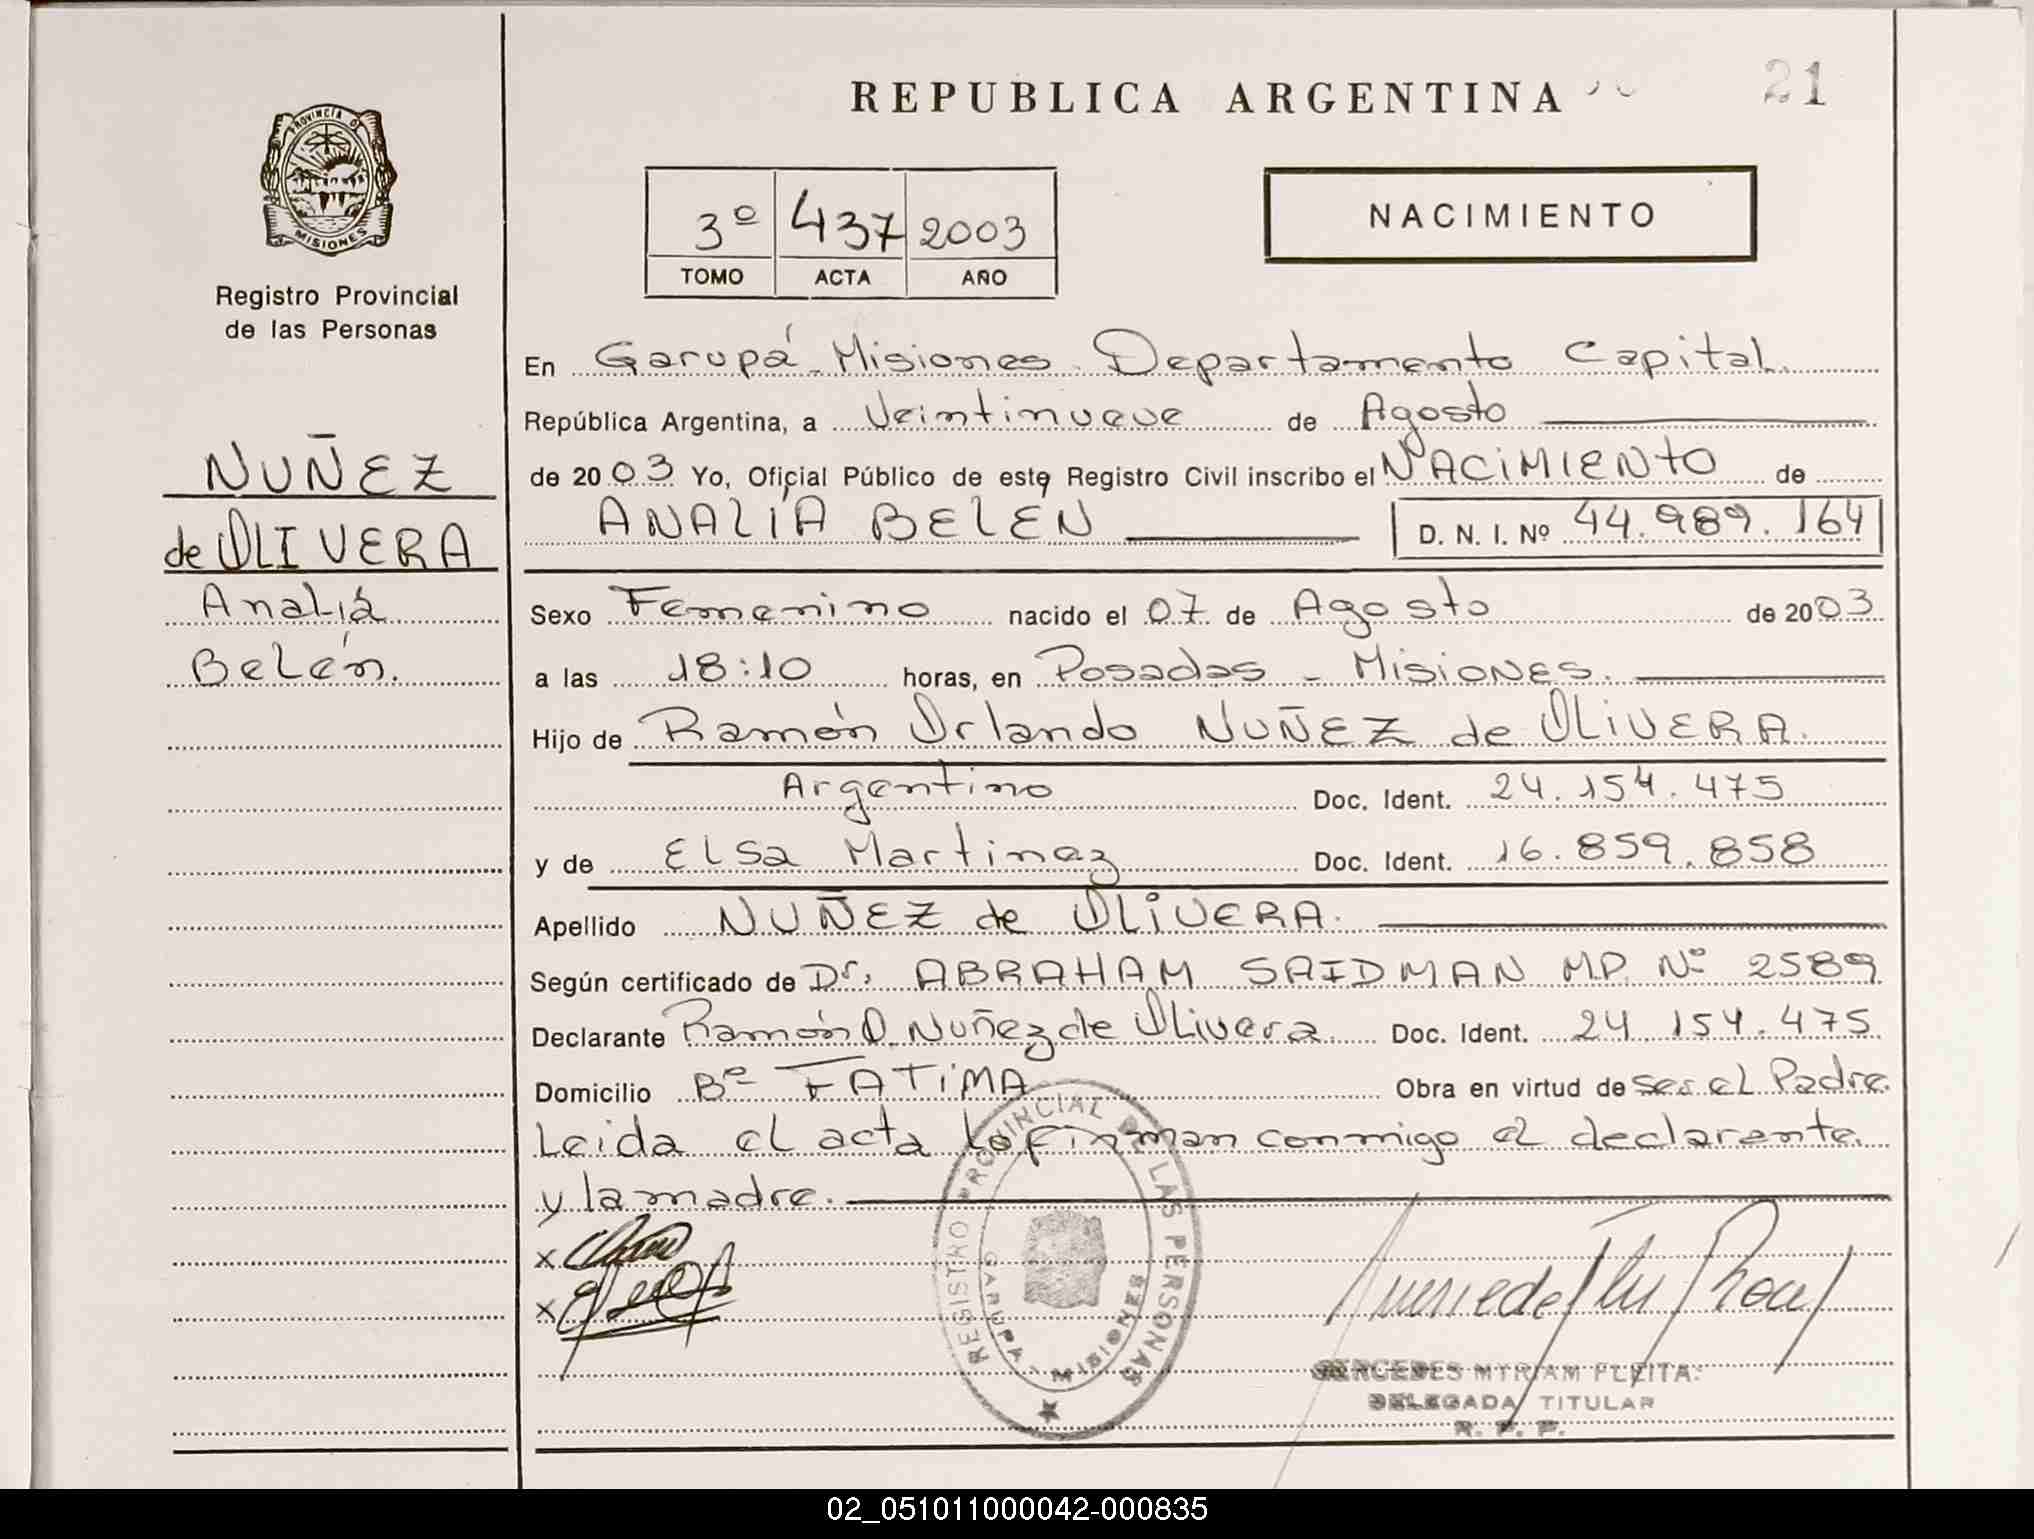 REPUBLICA ARGENTINA
21
PROVINCIA DE
MISIONES
Registro Provincial
de las Personas
3º 437 2003
TOMO ACTA AÑO
NACIMIENTO
NUÑEZ
de OLIVERA
Analiá
Belén.
En Garupá - Misiones. Departamento Capital.
República Argentina, a Veintinueve de Agosto
de 2003 Yo, Oficial Público de este Registro Civil inscribo el NACIMIENTO de
ANALÍA BELEN D. N. I. Nº 44.989.164
Sexo Femenino nacido el 07 de Agosto de 2003
a las 18:10 horas, en Posadas - Misiones.
Hijo de Ramón Orlando NUÑEZ de OLIVERA.
Argentino Doc. Ident. 24.154.475
y de Elsa Martinez Doc. Ident. 16.859.858
Apellido NUÑEZ de OLIVERA.
Según certificado de Dr. ABRAHAM SAIDMAN M.P. Nº 2589
Declarante Ramón O. Nuñez de Olivera. Doc. Ident. 24.154.475.
Domicilio Bº FATIMA Obra en virtud de ser el Padre.
Leida el acta lo firman conmigo el declarante
y la madre.
x
x
REGISTRO PROVINCIAL DE LAS PERSONAS
GARUPA - MISIONES
MERCEDES MYRIAM PLEITA
DELEGADA TITULAR
R. P. P.
02_051011000042-000835